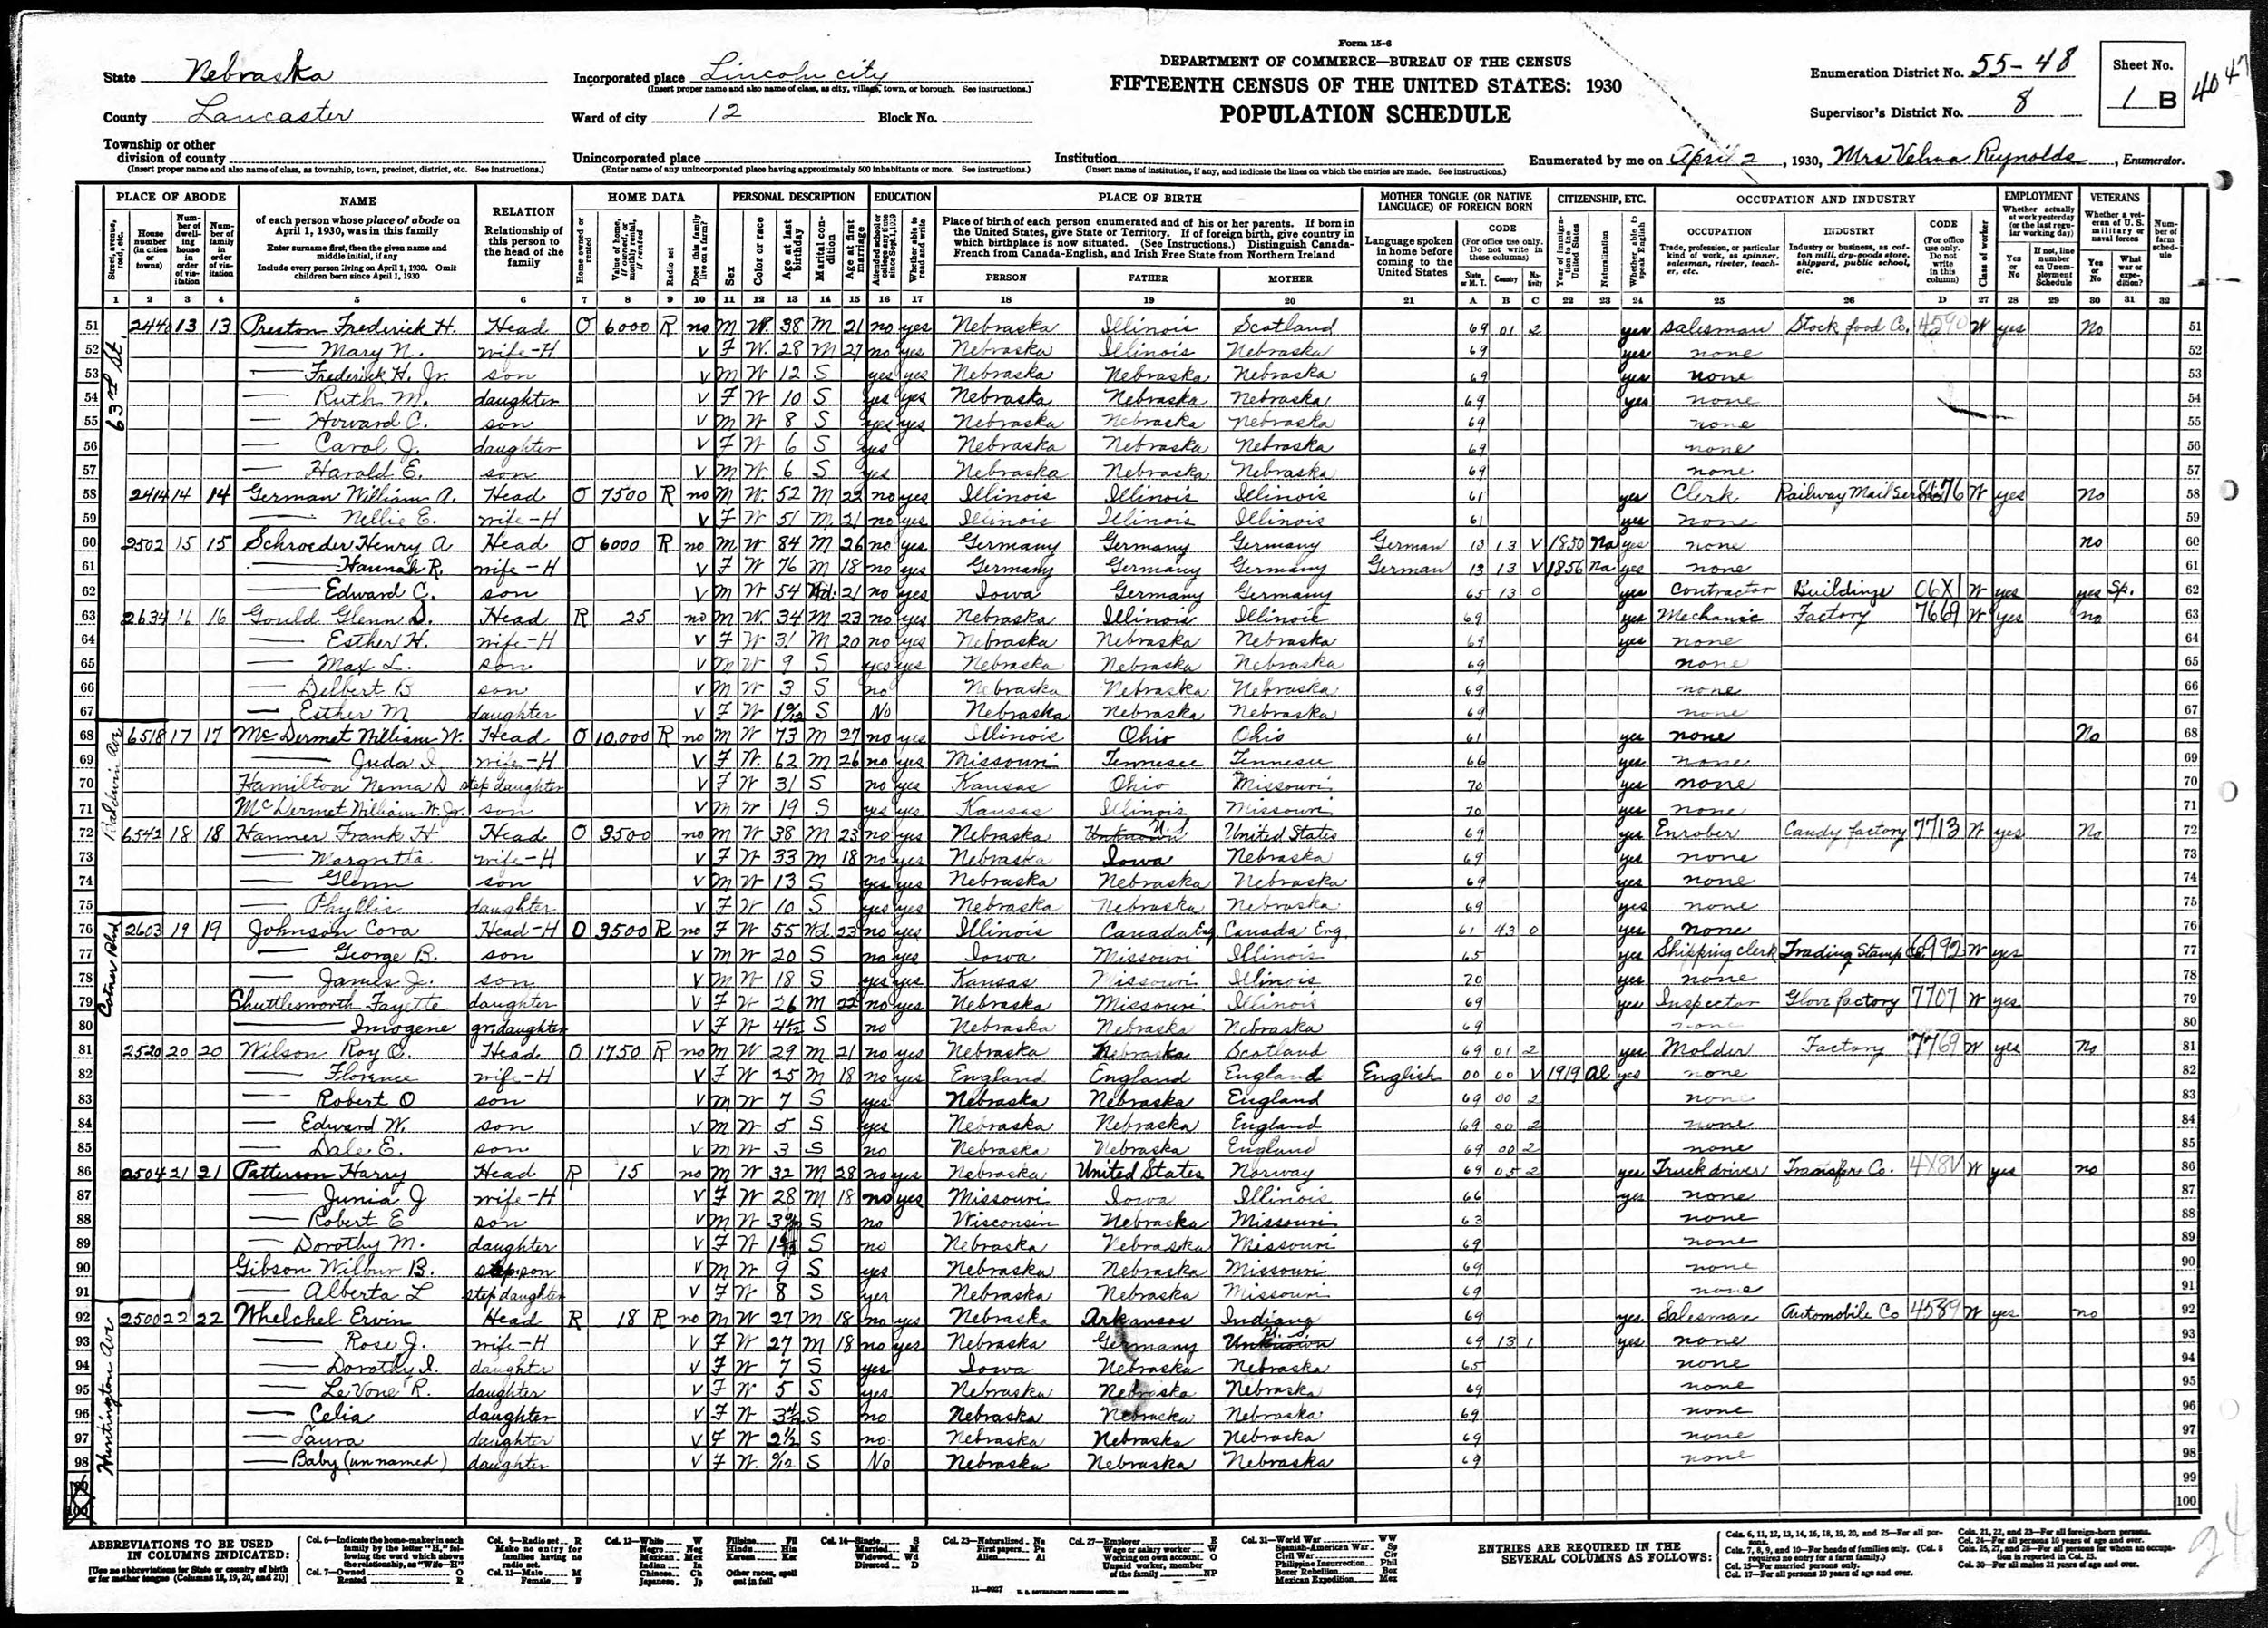 Form 15-6
DEPARTMENT OF COMMERCE—BUREAU OF THE CENSUS
FIFTEENTH CENSUS OF THE UNITED STATES: 1930
POPULATION SCHEDULE
State Nebraska
County Lancaster
Township or other division of county
(Insert proper name and also name of class, as township, town, precinct, district, etc. See instructions.)
Incorporated place Lincoln city
(Insert proper name and also name of class, as city, village, town, or borough. See instructions.)
Ward of city 12 Block No.
Unincorporated place
(Enter name of any unincorporated place having approximately 500 inhabitants or more. See instructions.)
Institution
(Insert name of institution, if any, and indicate the lines on which the entries are made. See instructions.)
Enumeration District No. 55-48
Supervisor's District No. 8
Sheet No. 1 B
Enumerated by me on April 2, 1930, Mrs Velma Reynolds, Enumerator.
PLACE OF ABODE NAME RELATION HOME DATA PERSONAL DESCRIPTION EDUCATION PLACE OF BIRTH MOTHER TONGUE (OR NATIVE LANGUAGE) OF FOREIGN BORN CITIZENSHIP, ETC. OCCUPATION AND INDUSTRY EMPLOYMENT VETERANS
1 2 3 4 5 6 7 8 9 10 11 12 13 14 15 16 17 18 19 20 21 A B C 22 23 24 25 26 D 27 28 29 30 31 32
63rd St.
51 2440 13 13 Preston Frederick H. Head O 6000 R no M W 38 M 21 no yes Nebraska Illinois Scotland 69 01 2 yes Salesman Stock food Co. 4590 W yes No 51
52 — Mary N. wife-H V F W 28 M 27 no yes Nebraska Illinois Nebraska 69 yes none 52
53 — Frederick H. Jr. son V M W 12 S yes yes Nebraska Nebraska Nebraska 69 yes none 53
54 — Ruth M. daughter V F W 10 S yes yes Nebraska Nebraska Nebraska 69 yes none 54
55 — Howard C. son V M W 8 S yes yes Nebraska Nebraska Nebraska 69 none 55
56 — Carol J. daughter V F W 6 S yes Nebraska Nebraska Nebraska 69 none 56
57 — Harold E. son V M W 6 S yes Nebraska Nebraska Nebraska 69 none 57
58 2414 14 14 German William A. Head O 7500 R no M W 52 M 22 no yes Illinois Illinois Illinois 61 yes Clerk Railway Mail 8676 W yes No 58
59 — Nellie E. wife-H V F W 51 M 21 no yes Illinois Illinois Illinois 61 yes none 59
60 2502 15 15 Schroeder Henry A Head O 6000 R no M W 84 M 26 no yes Germany Germany Germany German 13 13 V 1850 Na yes none no 60
61 — Hannah R. wife-H V F W 76 M 18 no yes Germany Germany Germany German 13 13 V 1856 Na yes none 61
62 — Edward C. son V M W 54 Wd. 21 no yes Iowa Germany Germany 65 13 0 yes Contractor Buildings 06X1 W yes yes Sp. 62
63 2634 16 16 Gould Glenn D. Head R 25 no M W 34 M 23 no yes Nebraska Illinois Illinois 69 yes Mechanic Factory 7669 W yes no 63
64 — Esther H. wife-H V F W 31 M 20 no yes Nebraska Nebraska Nebraska 69 yes none 64
65 — Max L. son V M W 9 S yes yes Nebraska Nebraska Nebraska 69 none 65
66 — Delbert B son V M W 3 S no Nebraska Nebraska Nebraska 69 none 66
67 — Esther M daughter V F W S No Nebraska Nebraska Nebraska 69 none 67
Baldwin Ave
68 6518 17 17 McDermet William W. Head O 10,000 R no M W 73 M 27 no yes Illinois Ohio Ohio 61 yes none No 68
69 — Juda I. wife-H V F W 62 M 26 no yes Missouri Tennesee Tennesee 66 yes none 69
70 Hamilton Nema D step daughter V F W 31 S no yes Kansas Ohio Missouri 70 yes none 70
71 McDermet William W. Jr. son V M W 19 S yes yes Kansas Illinois Missouri 70 yes none 71
72 6542 18 18 Hanner Frank H. Head O 3500 no M W 38 M 23 no yes Nebraska Unknown U.S. United States 69 yes Enrober Candy factory 7713 W yes No 72
73 — Margretta wife-H V F W 33 M 18 no yes Nebraska Iowa Nebraska 69 yes none 73
74 — Glenn son V M W 13 S yes yes Nebraska Nebraska Nebraska 69 yes none 74
75 — Phyllis daughter V F W 10 S yes yes Nebraska Nebraska Nebraska 69 yes none 75
Cotner Blvd
76 2603 19 19 Johnson Cora Head-H O 3500 R no F W 55 Wd. 23 no yes Illinois Canada Eng. Canada Eng. 61 43 0 yes none 76
77 — George B. son V M W 20 S no yes Iowa Missouri Illinois 65 yes Shipping Clerk Trading Stamp Co. 6992 W yes 77
78 — James J. son V M W 18 S yes yes Kansas Missouri Illinois 70 yes none 78
79 Shuttlesworth Fayette daughter V F W 26 M 22 no yes Nebraska Missouri Illinois 69 yes Inspector Glove factory 7707 W yes 79
80 — Imogene gr. daughter V F W S no Nebraska Nebraska Nebraska 69 none 80
81 2520 20 20 Wilson Roy O. Head O 1750 R no M W 29 M 21 no yes Nebraska Nebraska Scotland 69 01 2 yes Molder Factory 7769 W yes No 81
82 — Florence wife-H V F W 25 M 18 no yes England England England English 00 00 V 1919 Al yes none 82
83 — Robert O son V M W 7 S yes Nebraska Nebraska England 69 00 2 none 83
84 — Edward W. son V M W 5 S yes Nebraska Nebraska England 69 00 2 none 84
85 — Dale E. son V M W 3 S no Nebraska Nebraska England 69 00 2 none 85
86 2504 21 21 Patterson Harry Head R 15 no M W 32 M 28 no yes Nebraska United States Norway 69 05 2 yes Truck driver Transfer Co. 4X8V W yes no 86
87 — Junia J. wife-H V F W 28 M 18 no yes Missouri Iowa Illinois 66 yes none 87
88 — Robert E son V M W S no Wisconsin Nebraska Missouri 63 none 88
89 — Dorothy M. daughter V F W S no Nebraska Nebraska Missouri 69 none 89
90 Gibson Wilbur B. stepson V M W 9 S yes Nebraska Nebraska Missouri 69 none 90
91 — Alberta L step daughter V F W 8 S yes Nebraska Nebraska Missouri 69 none 91
Huntington Ave
92 2500 22 22 Whelchel Ervin Head R 18 R no M W 27 M 18 no yes Nebraska Arkansas Indiana 69 yes Salesman Automobile Co 4589 W yes no 92
93 — Rose J. wife-H V F W 27 M 18 no yes Nebraska Germany Unknown 69 13 1 yes none 93
94 — Dorothy I. daughter V F W 7 S yes Iowa Nebraska Nebraska 65 none 94
95 — LeVone R. daughter V F W 5 S yes Nebraska Nebraska Nebraska 69 none 95
96 — Celia daughter V F W S no Nebraska Nebraska Nebraska 69 none 96
97 — Laura daughter V F W 2½ S no Nebraska Nebraska Nebraska 69 none 97
98 — Baby (unnamed) daughter V F W S No Nebraska Nebraska Nebraska 69 none 98
99
100
ABBREVIATIONS TO BE USED IN COLUMNS INDICATED:
[Use no abbreviations for State or country of birth or for mother tongue (Columns 18, 19, 20, and 21)]
ENTRIES ARE REQUIRED IN THE SEVERAL COLUMNS AS FOLLOWS: